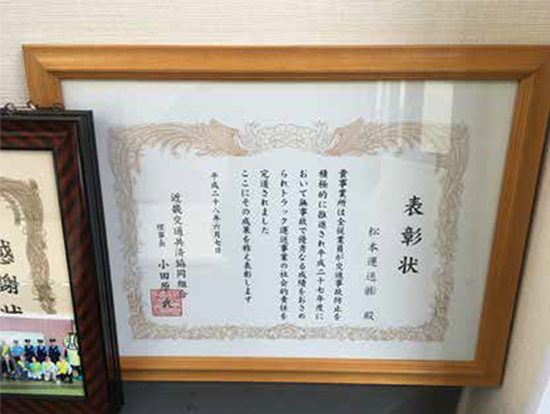 表彰状
松本運送㈱ 殿
貴事業所は全従業員が交通事故防止を
積極的に推進され平成二十七年度に
おいて無事故で優秀なる成績をおさめ
られトラック運送事業の社会的責任を
完遂されました
ここにその成果を称え表彰します
平成二十八年六月七日
近畿交通共済協同組合
理事長 小田原
感謝状